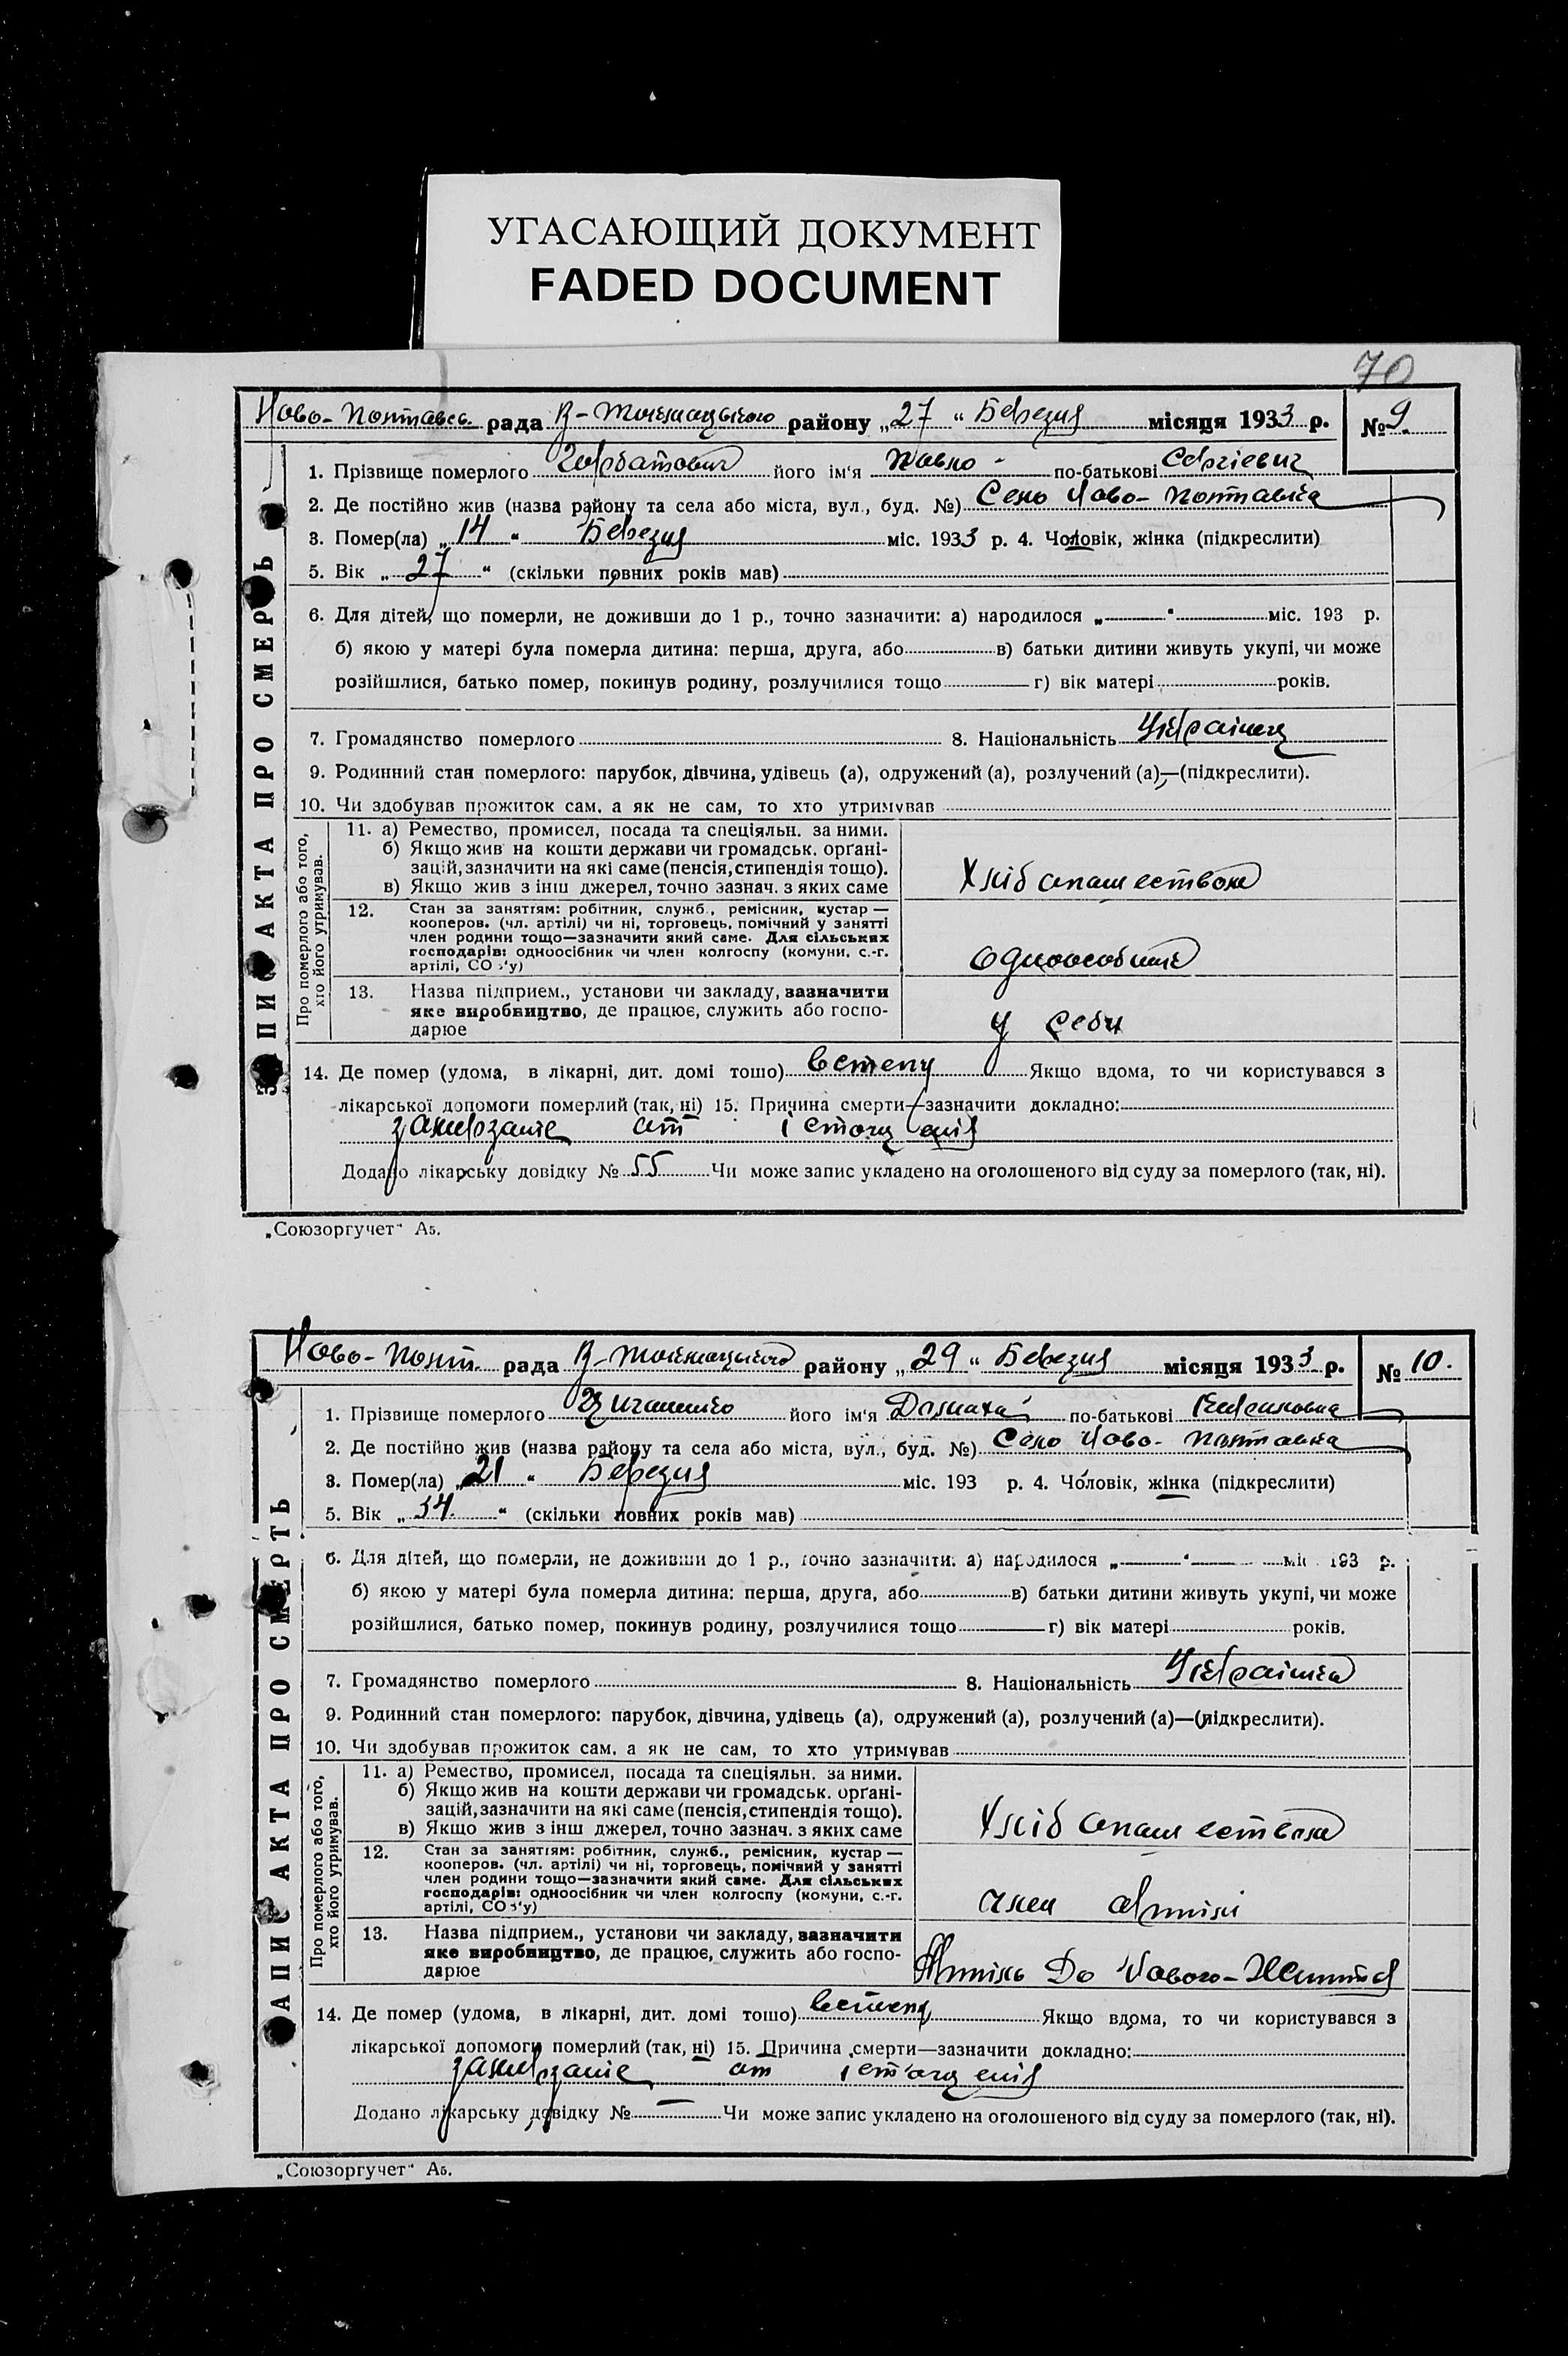 УГАСАЮЩИЙ ДОКУМЕНТ
FADED DOCUMENT
70
Ново-Полтавсь. рада В-Токмацького району „27“ Березня місяця 1933 р. № 9.
ЗАПИС АКТА ПРО СМЕРТЬ
1. Прізвище померлого Горбатович його ім'я Павло по-батькові Сергієвич
2. Де постійно жив (назва району та села або міста, вул., буд. №) Село Ново-Полтавка
3. Помер(ла) „14“ Березня міс. 1933 р. 4. Чоловік, жінка (підкреслити)
5. Вік „27“ (скільки повних років мав)
6. Для дітей, що померли, не доживши до 1 р., точно зазначити: а) народилося „—“ міс. 193 р.
б) якою у матері була померла дитина: перша, друга, або в) батьки дитини живуть укупі, чи може
розійшлися, батько помер, покинув родину, розлучилися тощо г) вік матері років.
7. Громадянство померлого 8. Національність Українец
9. Родинний стан померлого: парубок, дівчина, удівець (а), одружений (а), розлучений (а)—(підкреслити).
10. Чи здобував прожиток сам, а як не сам, то хто утримував
Про померлого або того, хто його утримував.
11. а) Ремество, промисел, посада та спеціяльн. за ними.
б) Якщо жив на кошти держави чи громадськ. органі-
зацій, зазначити на які саме (пенсія, стипендія тощо).
в) Якщо жив з інш джерел, точно зазнач. з яких саме
Хліб опашеством
12. Стан за заняттям: робітник, служб., ремісник, кустар —
кооперов. (чл. артілі) чи ні, торговець, помічний у занятті
член родини тощо—зазначити який саме. Для сільських
господарів: одноосібник чи член колгоспу (комуни, с.-г.
артілі, СОЗ'у)
одноособник
13. Назва підприєм., установи чи закладу, зазначити
яке виробництво, де працює, служить або госпо-
дарює
у себя
14. Де помер (удома, в лікарні, дит. домі тощо) встепу Якщо вдома, то чи користувався з
лікарської допомоги померлий (так, ні) 15. Причина смерти—зазначити докладно:
замерзание от істощения
Додано лікарську довідку № 55 Чи може запис укладено на оголошеного від суду за померлого (так, ні).
„Союзоргучет“ А5.
Ново-Полт. рада В-Токмацького району „29“ Березня місяця 1933 р. № 10.
ЗАПИС АКТА ПРО СМЕРТЬ
1. Прізвище померлого його ім'я по-батькові
2. Де постійно жив (назва району та села або міста, вул., буд. №) Село Ново-Полтавка
3. Помер(ла) „21“ Березня міс. 193 р. 4. Чоловік, жінка (підкреслити)
5. Вік „34“ (скільки повних років мав)
6. Для дітей, що померли, не доживши до 1 р., точно зазначити: а) народилося „—“ міс. 193 р.
б) якою у матері була померла дитина: перша, друга, або в) батьки дитини живуть укупі, чи може
розійшлися, батько помер, покинув родину, розлучилися тощо г) вік матері років.
7. Громадянство померлого 8. Національність Українка
9. Родинний стан померлого: парубок, дівчина, удівець (а), одружений (а), розлучений (а)—(підкреслити).
10. Чи здобував прожиток сам, а як не сам, то хто утримував
Про померлого або того, хто його утримував.
11. а) Ремество, промисел, посада та спеціяльн. за ними.
б) Якщо жив на кошти держави чи громадськ. органі-
зацій, зазначити на які саме (пенсія, стипендія тощо).
в) Якщо жив з інш джерел, точно зазнач. з яких саме
Хліб опашеством
12. Стан за заняттям: робітник, служб., ремісник, кустар —
кооперов. (чл. артілі) чи ні, торговець, помічний у занятті
член родини тощо—зазначити який саме. Для сільських
господарів: одноосібник чи член колгоспу (комуни, с.-г.
артілі, СОЗ'у)
член артілі
13. Назва підприєм., установи чи закладу, зазначити
яке виробництво, де працює, служить або госпо-
дарює
Артіль До Нового-Життя
14. Де помер (удома, в лікарні, дит. домі тощо) встепу Якщо вдома, то чи користувався з
лікарської допомоги померлий (так, ні) 15. Причина смерти—зазначити докладно:
замерзание от істощения
Додано лікарську довідку № — Чи може запис укладено на оголошеного від суду за померлого (так, ні).
„Союзоргучет“ А5.